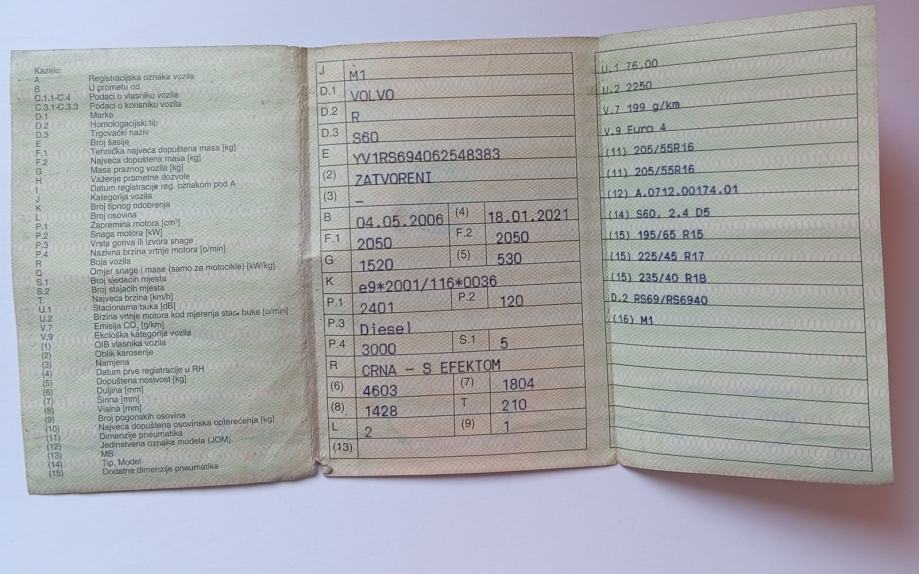 Kazalo:
A Registracijska oznaka vozila
B U prometu od
C.1.1-C.4 Podaci o vlasniku vozila
C.3.1-C.3.3 Podaci o korisniku vozila
D.1 Marka
D.2 Homologacijski tip
D.3 Trgovački naziv
E Broj šasije
F.1 Tehnička najveća dopuštena masa [kg]
F.2 Najveća dopuštena masa [kg]
G Masa praznog vozila [kg]
H Važenje prometne dozvole
I Datum registracije reg. oznakom pod A
J Kategorija vozila
K Broj tipnog odobrenja
L Broj osovina
P.1 Zapremina motora [cm³]
P.2 Snaga motora [kW]
P.3 Vrsta goriva ili izvora snage
P.4 Nazivna brzina vrtnje motora [o/min]
R Boja vozila
Q Omjer snage i mase (samo za motocikle) [kW/kg]
S.1 Broj sjedećih mjesta
S.2 Broj stajaćih mjesta
T Najveća brzina [km/h]
U.1 Stacionarna buka [dB]
U.2 Brzina vrtnje motora kod mjerenja stac. buke [o/min]
V.7 Emisija CO₂ [g/km]
V.9 Ekološka kategorija vozila
(1) OIB vlasnika vozila
(2) Oblik karoserije
(3) Namjena
(4) Datum prve registracije u RH
(5) Dopuštena nosivost [kg]
(6) Duljina [mm]
(7) Širina [mm]
(8) Visina [mm]
(9) Broj pogonskih osovina
(10) Najveća dopuštena osovinska opterećenja [kg]
(11) Dimenzije pneumatika
(12) Jedinstvena oznaka modela (JOM)
(13) MB
(14) Tip, Model
(15) Dodatne dimenzije pneumatika
J M1
D.1 VOLVO
D.2 R
D.3 S60
E YV1RS694062548383
(2) ZATVORENI
(3) –
B 04.05.2006 (4) 18.01.2021
F.1 2050 F.2 2050
G 1520 (5) 530
K e9*2001/116*0036
P.1 2401 P.2 120
P.3 Diesel
P.4 3000 S.1 5
R CRNA - S EFEKTOM
(6) 4603 (7) 1804
(8) 1428 T 210
L 2 (9) 1
(13)
U.1 76,00
U.2 2250
V.7 199 g/km
V.9 Euro 4
(11) 205/55R16
(11) 205/55R16
(12) A.0712.00174.01
(14) S60, 2.4 D5
(15) 195/65 R15
(15) 225/45 R17
(15) 235/40 R18
D.2 RS69/RS6940
(16) M1